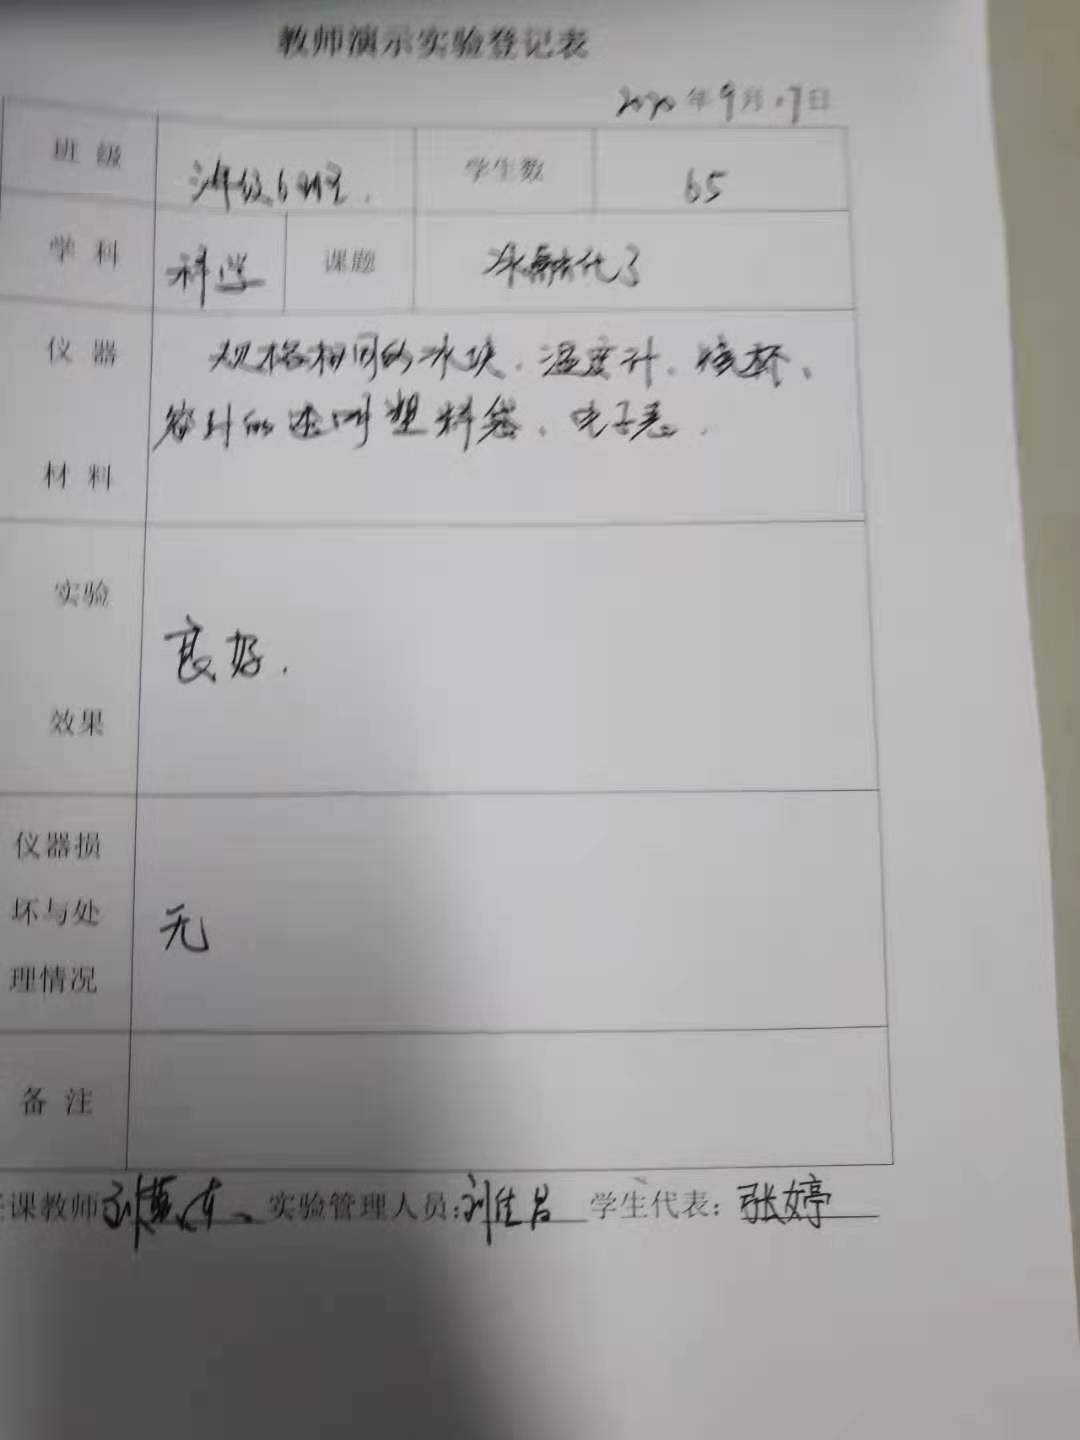 教师演示实验登记表
2020年9月17日
班级 三年级6班 学生数 65
学科 科学 课题 冰融化了
仪器 规格相同的冰块、温度计、烧杯、
密封的透明塑料袋、电子表.
材料
实验
良好.
效果
仪器损
坏与处 无
理情况
备注
课教师 实验管理人员: 学生代表: 张婷